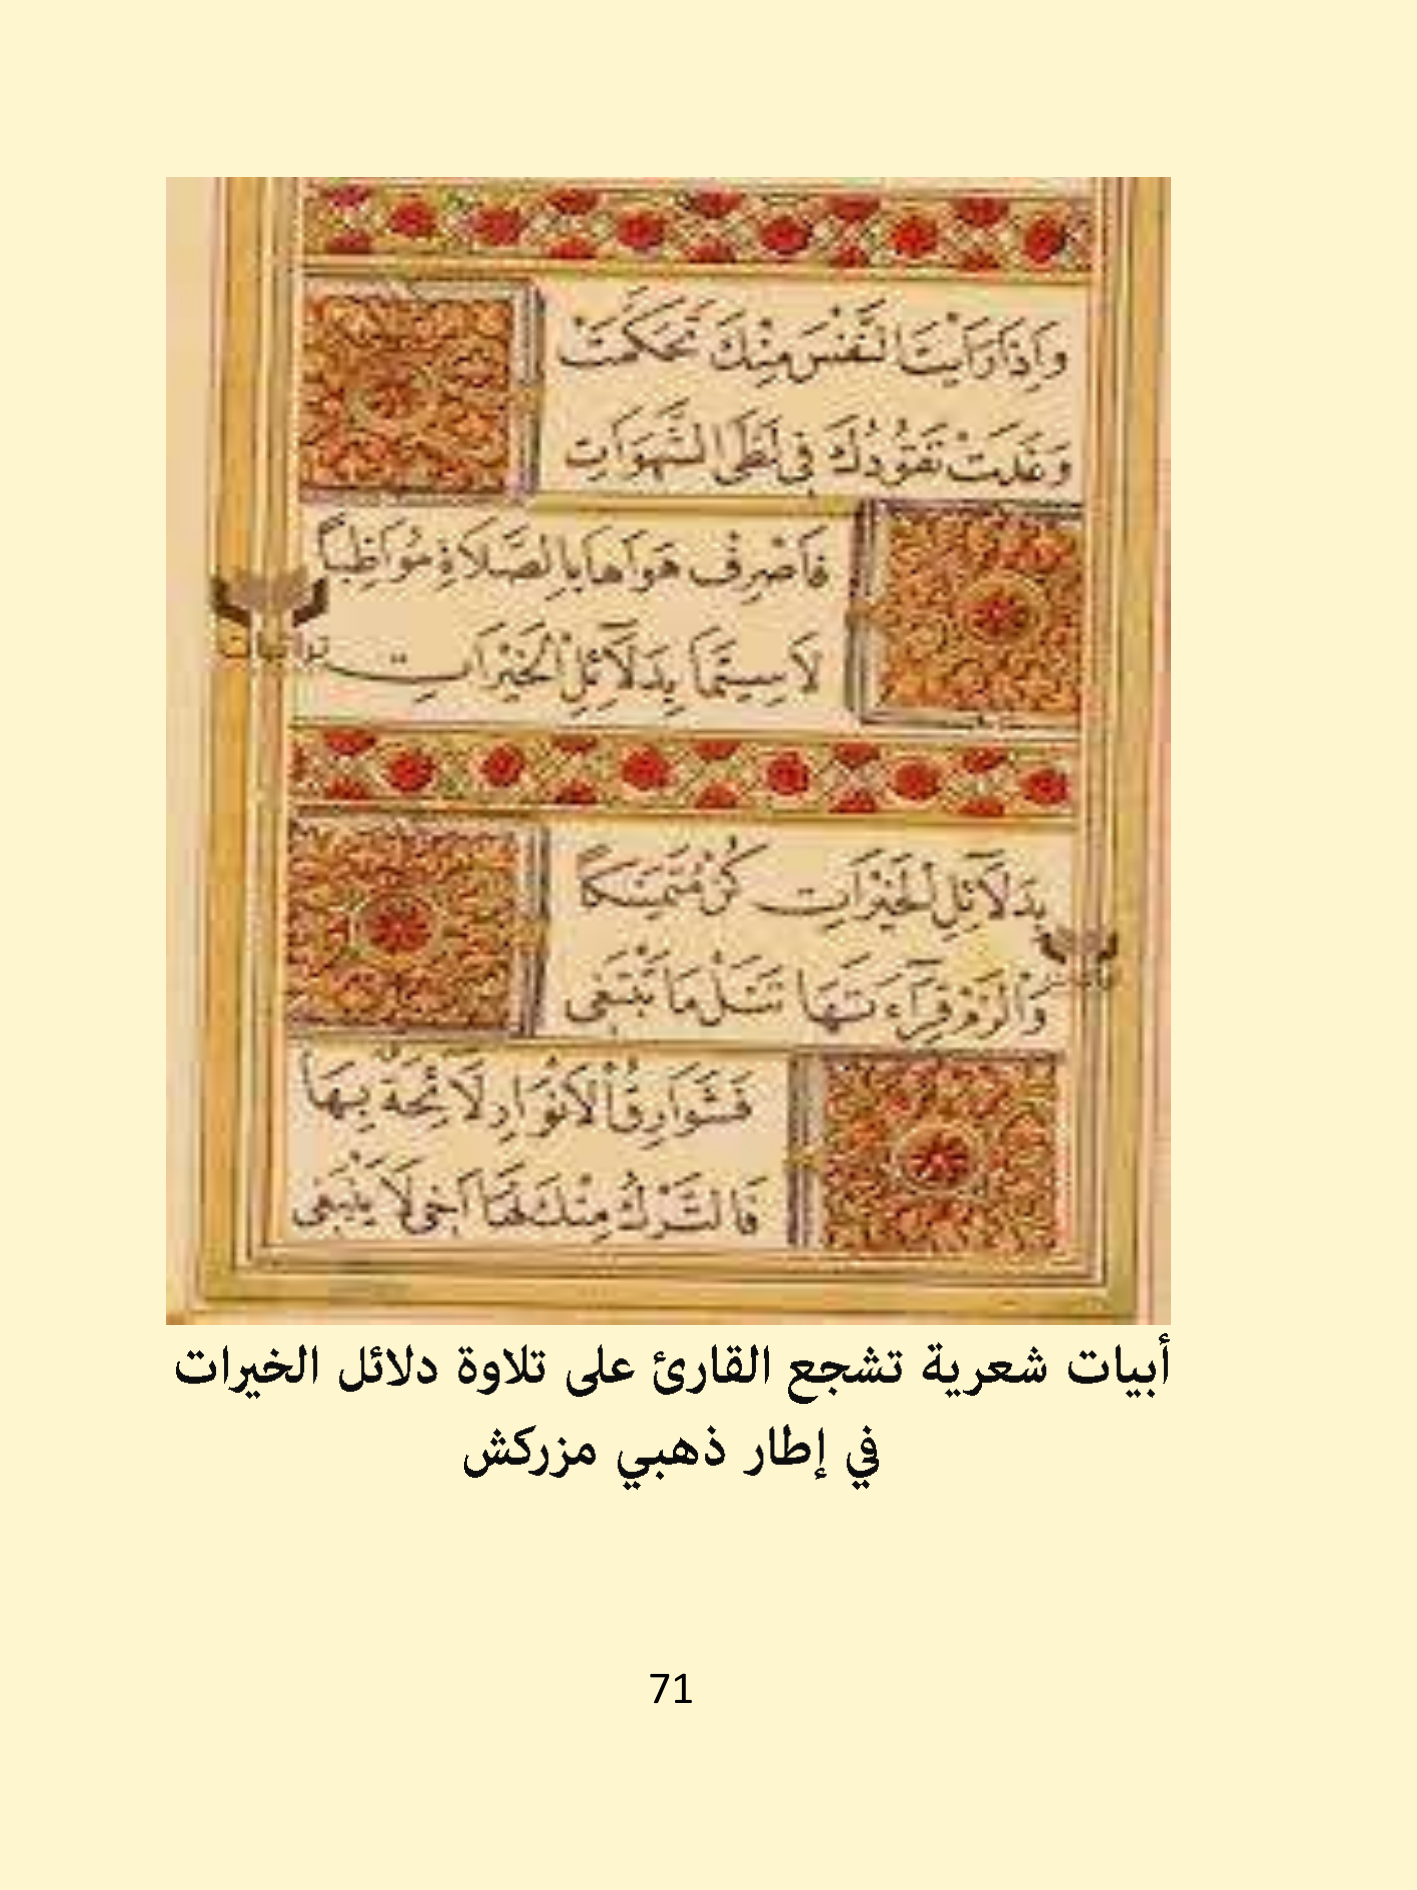 وَاِذَا رَاَيْتَ النَّفْسَ مِنْكَ تَحَكَّمَتْ
وَغَدَتْ تَقُودُكَ فِى لَظَى الشَّهَوَاتِ
فَاصْرِفْ هَوَاهَا بِالصَّلَاةِ مُوَاظِبًا
لَاسِيَّمَا بِدَلَآئِلِ الْخَيْرَاتِ
بِدَلَآئِلِ الْخَيْرَاتِ كُنْ مُتَمَسِّكًا
وَالْزَمْ قِرَآءَتَهَا تَنَلْ مَا تَبْتَغِى
فَشَوَارِقُ الْاَنْوَارِ لَائِحَةٌ بِهَا
فَالتَّرْكُ مِنْكَ لَهَا اَخِى لَا يَنْبَغِى
أبيات شعرية تشجع القارئ على تلاوة دلائل الخيرات
في إطار ذهبي مزركش
71